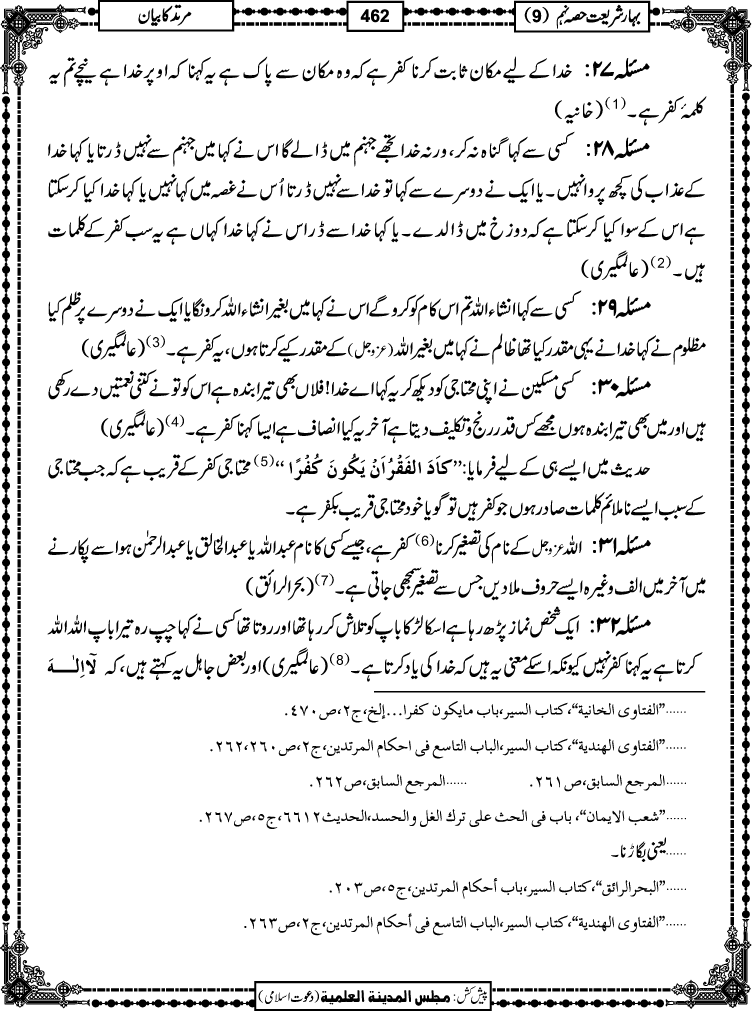 بہارِ شریعت حصہ نہم (9)
462
مرتد کا بیان
مسئلہ ۲۷: خدا کے لیے مکان ثابت کرنا کفر ہے کہ وہ مکان سے پاک ہے یہ کہنا کہ اوپر خدا ہے نیچے تم یہ
کلمۂ کفر ہے۔(1) (خانیہ)
مسئلہ ۲۸: کسی سے کہا گناہ نہ کر، ورنہ خدا تجھے جہنم میں ڈالے گا اس نے کہا میں جہنم سے نہیں ڈرتا یا کہا خدا
کے عذاب کی کچھ پروا نہیں۔ یا ایک نے دوسرے سے کہا تو خدا سے نہیں ڈرتا اُس نے غصہ میں کہا نہیں یا کہا خدا کیا کرسکتا
ہے اس کے سوا کیا کرسکتا ہے کہ دوزخ میں ڈالدے۔ یا کہا خدا سے ڈر اس نے کہا خدا کہاں ہے یہ سب کفر کے کلمات
ہیں۔(2) (عالمگیری)
مسئلہ ۲۹: کسی سے کہا انشاء اللہ تم اس کام کو کرو گے اس نے کہا میں بغیر انشاء اللہ کرونگا یا ایک نے دوسرے پر ظلم کیا
مظلوم نے کہا خدا نے یہی مقدر کیا تھا ظالم نے کہا میں بغیر اللہ (عزوجل) کے مقدر کیے کرتا ہوں، یہ کفر ہے۔(3) (عالمگیری)
مسئلہ ۳۰: کسی مسکین نے اپنی محتاجی کو دیکھ کر یہ کہا اے خدا! فلاں بھی تیرا بندہ ہے اس کو تو نے کتنی نعمتیں دے رکھی
ہیں اور میں بھی تیرا بندہ ہوں مجھے کس قدر رنج و تکلیف دیتا ہے آخر یہ کیا انصاف ہے ایسا کہنا کفر ہے۔(4) (عالمگیری)
حدیث میں ایسے ہی کے لیے فرمایا: ”كَادَ الفَقْرُ اَنْ يَكُونَ كُفْرًا“ (5) محتاجی کفر کے قریب ہے کہ جب محتاجی
کے سبب ایسے نا ملائم کلمات صادر ہوں جو کفر ہیں تو گویا خود محتاجی قریب بکفر ہے۔
مسئلہ ۳۱: اللہ عزوجل کے نام کی تصغیر کرنا(6) کفر ہے، جیسے کسی کا نام عبداللہ یا عبدالخالق یا عبدالرحمٰن ہو اسے پکارنے
میں آخر میں الف وغیرہ ایسے حروف ملا دیں جس سے تصغیر سمجھی جاتی ہے۔(7) (بحرالرائق)
مسئلہ ۳۲: ایک شخص نماز پڑھ رہا ہے اسکا لڑکا باپ کو تلاش کر رہا تھا اور روتا تھا کسی نے کہا چپ رہ تیرا باپ اللہ اللہ
کرتا ہے یہ کہنا کفر نہیں کیونکہ اسکے معنی یہ ہیں کہ خدا کی یاد کرتا ہے۔(8) (عالمگیری) اور بعض جاہل یہ کہتے ہیں، کہ لَآ اِلٰـہَ
......”الفتاوى الخانية“، كتاب السير، باب مايكون كفرا...إلخ، ج٢، ص٤٧٠.
......”الفتاوى الهندية“، كتاب السير، الباب التاسع فى احكام المرتدين، ج٢، ص٢٦٢،٢٦٠.
......المرجع السابق، ص٢٦١. ......المرجع السابق، ص٢٦٢.
......”شعب الايمان“، باب فى الحث على ترك الغل والحسد، الحديث٦٦١٢، ج٥، ص٢٦٧.
......یعنی بگاڑنا۔
......”البحرالرائق“، كتاب السير، باب أحكام المرتدين، ج٥، ص٢٠٣.
......”الفتاوى الهندية“، كتاب السير، الباب التاسع فى أحكام المرتدين، ج٢، ص٢٦٣.
پیش کش: مجلس المدينة العلمية (دعوت اسلامی)